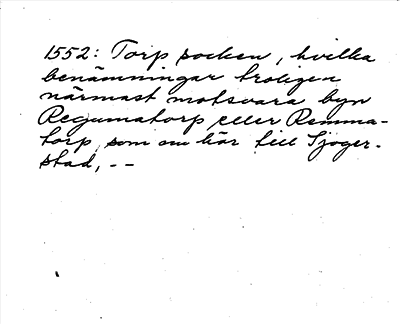 1552: Torp socken, hvilka
benämningar troligen
närmast motsvara byn
Regumatorp eller Remma-
torp, som om här till Sjöger-
stad, --